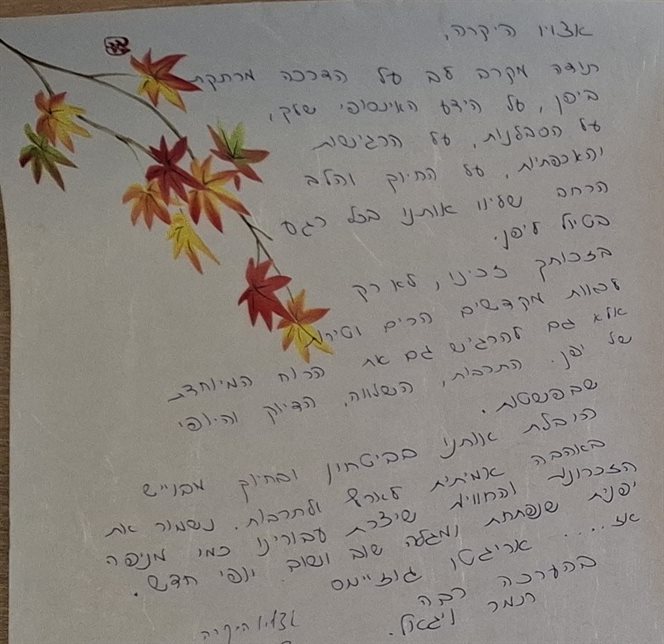 אצויו היקרה,
תודה מקרב לב על הדרכה מרתקת
ביפן, על הידע האינסופי שלך,
על הסבלנות, על הרגישות
והאכפתיות, על החיוך והלב
הרחב שליוו אותנו בכל רגע
בטיול ליפן.
בזכותך זכינו, לא רק
לראות מקדשים הרים וטירות
אלא גם להרגיש גם את הרוח המיוחדת
של יפן. התרבות, השלווה, הדיוק והיופי
שבפשטות.
הובלת אותנו בביטחון ובחיוך מבוייש
באהבה אמיתית לארץ ולתרבות. נשמור את
הזכרונות והחוויות שיצרת עבורינו כמו מניפה
יפנית שנפתחת ומגלה שוב ושוב יופי חדש.
אז.... אריגטו גוזיימס
בהערכה רבה
תמר ויגאל.
אצויו היקרה